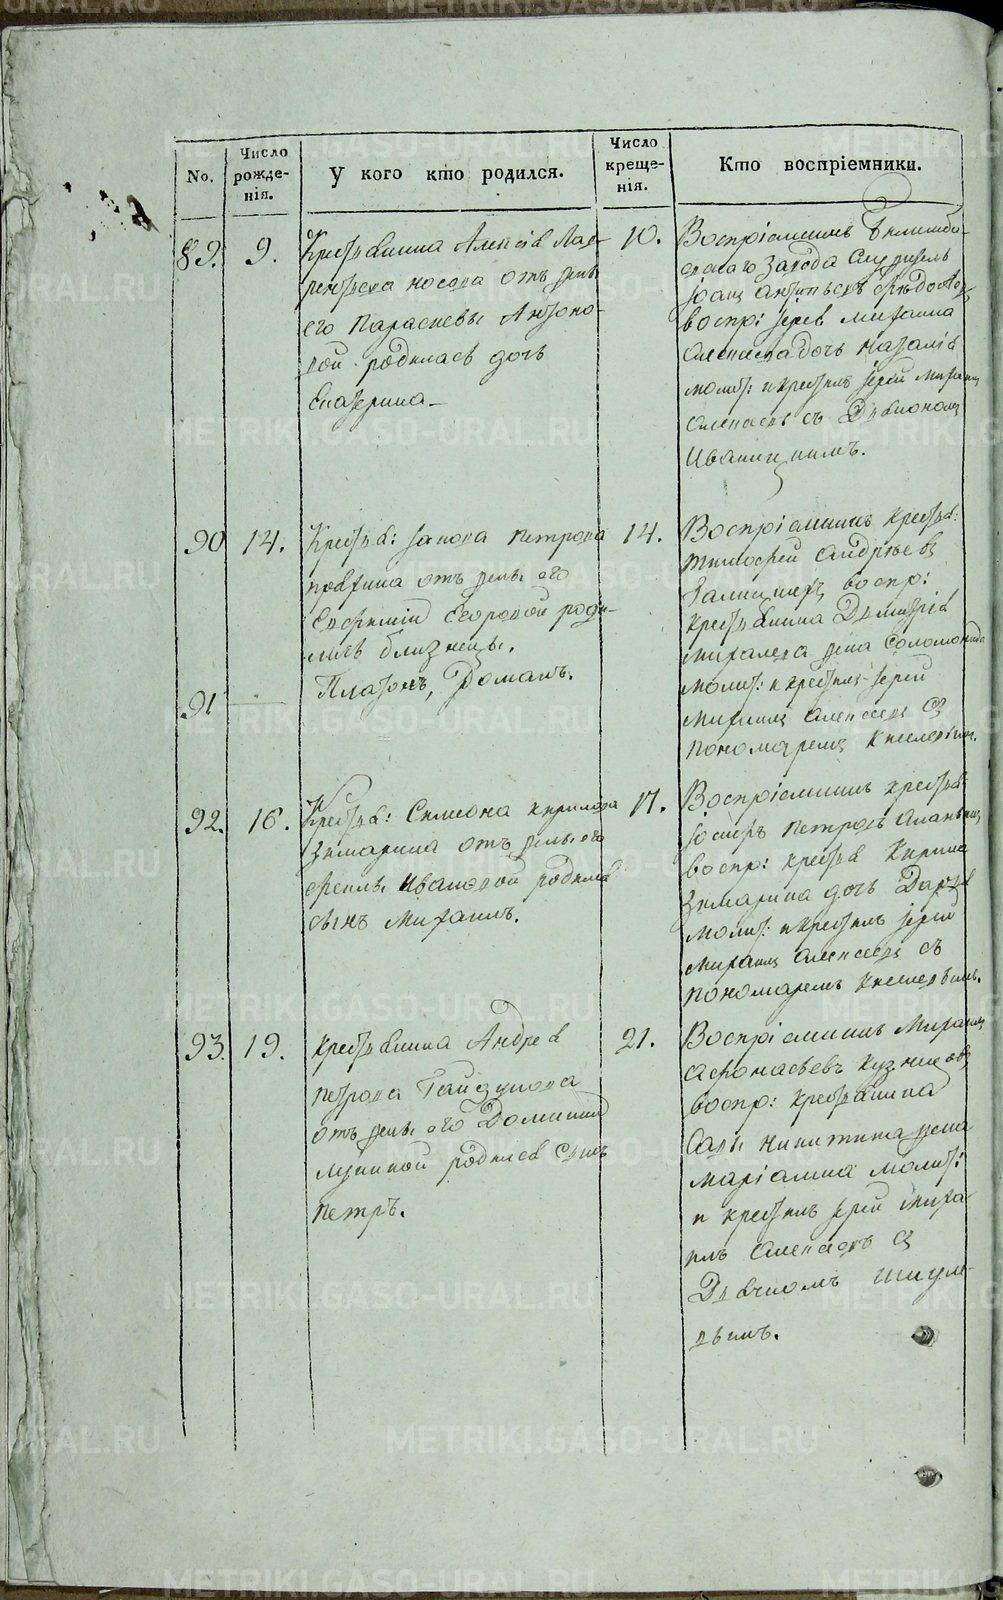 No.
Число рожде-
нія.
У кого кто родился.
Число креще-
нія.
Кто воспріемники.
89.
9.
Крестьянина Алексѣя Лав-
рентьева Носова отъ жены
его Парасковьи Антоно-
вой родилась дочь
Екатерина
10.
Воспріемникъ Билимба-
евскаго завода служитель
воспр: іерея Михаила
Алексѣева дочь Наталія
молит: и крестилъ іерей Михаилъ
Алексѣевъ съ Дьякономъ
Иваницкимъ.
90
14.
Крестья: Іакова Петрова
отъ жены его
Евфиміи Егоровой роди-
лись близнецы.
91
Платонъ, Романъ.
14.
Воспріемникъ крестья:
Тимофей Андреевъ
воспр:
крестьянина Димитрія
жена Соломонида
молит: и крестилъ іерей
Михаилъ Алексѣевъ съ
пономаремъ Киселевымъ.
92.
16.
Крестья: Симеона Кирилова
отъ жены его
Феклы Ивановой родился
сынъ Михаилъ.
17.
Воспріемникъ крестья:
Іосифъ Петровъ
воспр: крестья Кирила
дочь Дарья
молит: и крестилъ іерей
Михаилъ Алексѣевъ съ
пономаремъ Киселевымъ.
93.
19.
Крестьянина Андрея
Петрова
отъ жены его Домникіи
родился сынъ
Петръ.
21.
Воспріемникъ Михаилъ
Афонасьевъ Кузнецовъ
воспр: крестьянина
Савы Никитина жена
Маріамна молит:
и крестилъ іерей Миха-
илъ Алексѣевъ съ
Дьячкомъ
METRIKI.GASO-URAL.RU